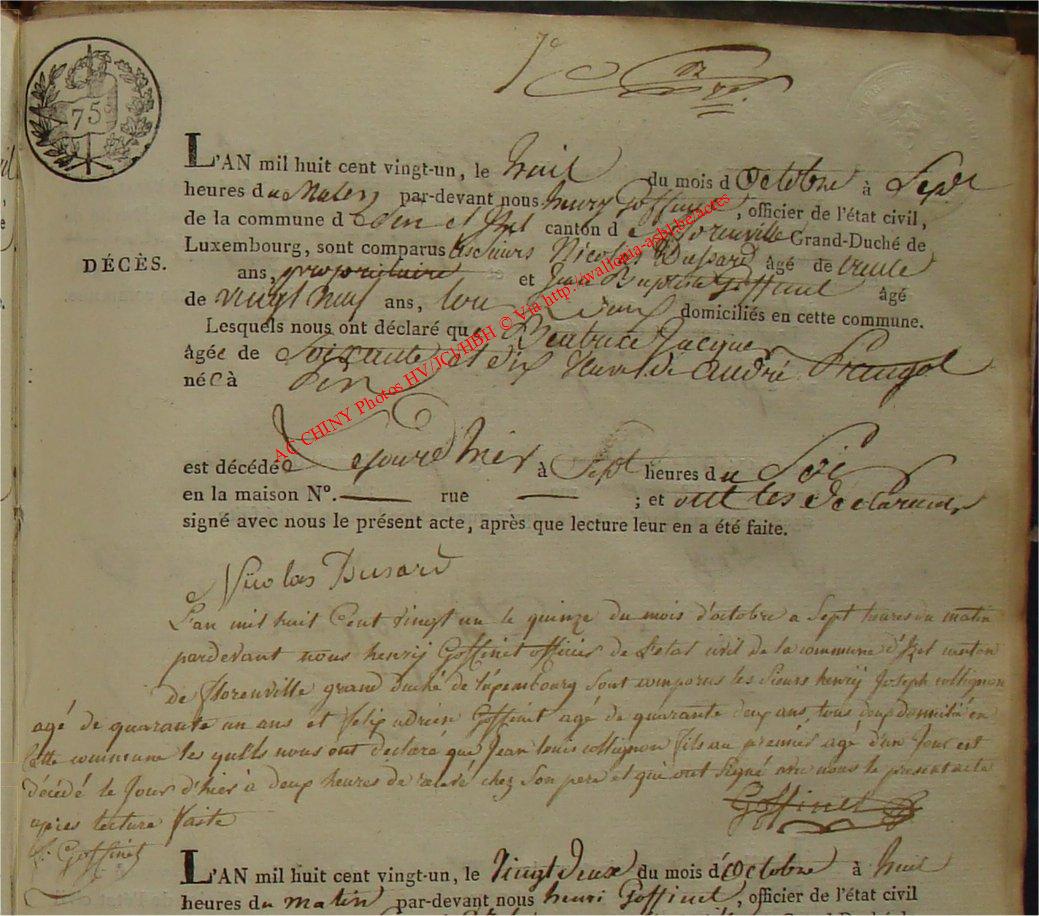 7e
75
L'AN mil huit cent vingt-un, le huit du mois d'Octobre à Sept
heures du Matin par-devant nous henry Goffinet, officier de l'état civil,
de la commune d' et Izel canton de florenville Grand-Duché de
Luxembourg, sont comparus les sieurs Nicolas Dussard âgé de trente
DÉCÈS.
ans, proprietaire et Jean Baptiste Goffinet âgé
de vingt neuf ans, tou deux domiciliés en cette commune.
Lesquels nous ont déclaré que Beatrice Jacques
âgée de Soixante et dix Veuve de andré
née à
est décédée Le jour d'hier à Sept heures du Soir
en la maison No. — rue — ; et ont les déclarants
signé avec nous le présent acte, après que lecture leur en a été faite.
AC CHINY Photos HV/JCl/HBH © Via http://wallonia-asbl.be/acres
Nicolas Dusard
L'an mil huit Cent vingt un le quinze du mois d'octobre a Sept heures du matin
pardevant nous henrÿ Goffinet officier de L'etat civil de la commune d'Izel canton
de florenville grand duché de luxembourg Sont comparus les Sieurs henrÿ Joseph collignon
agé de quarante un ans et felix adrien Goffinet agé de quarante deux ans, tous deux domicilié en
cette commune les quells nous ont declaré que Jean louis collignon fils au premier agé d'un Jour est
décédé le Jour d'hier à deux heures de relevé chez Son pere et qui ont Signé avec nous le present acte
apres lecture faite
Goffinet
f. Goffinet
L'AN mil huit cent vingt-un, le Vingt deux du mois d'Octobre à huit
heures du matin par-devant nous henri Goffinet, officier de l'état civil